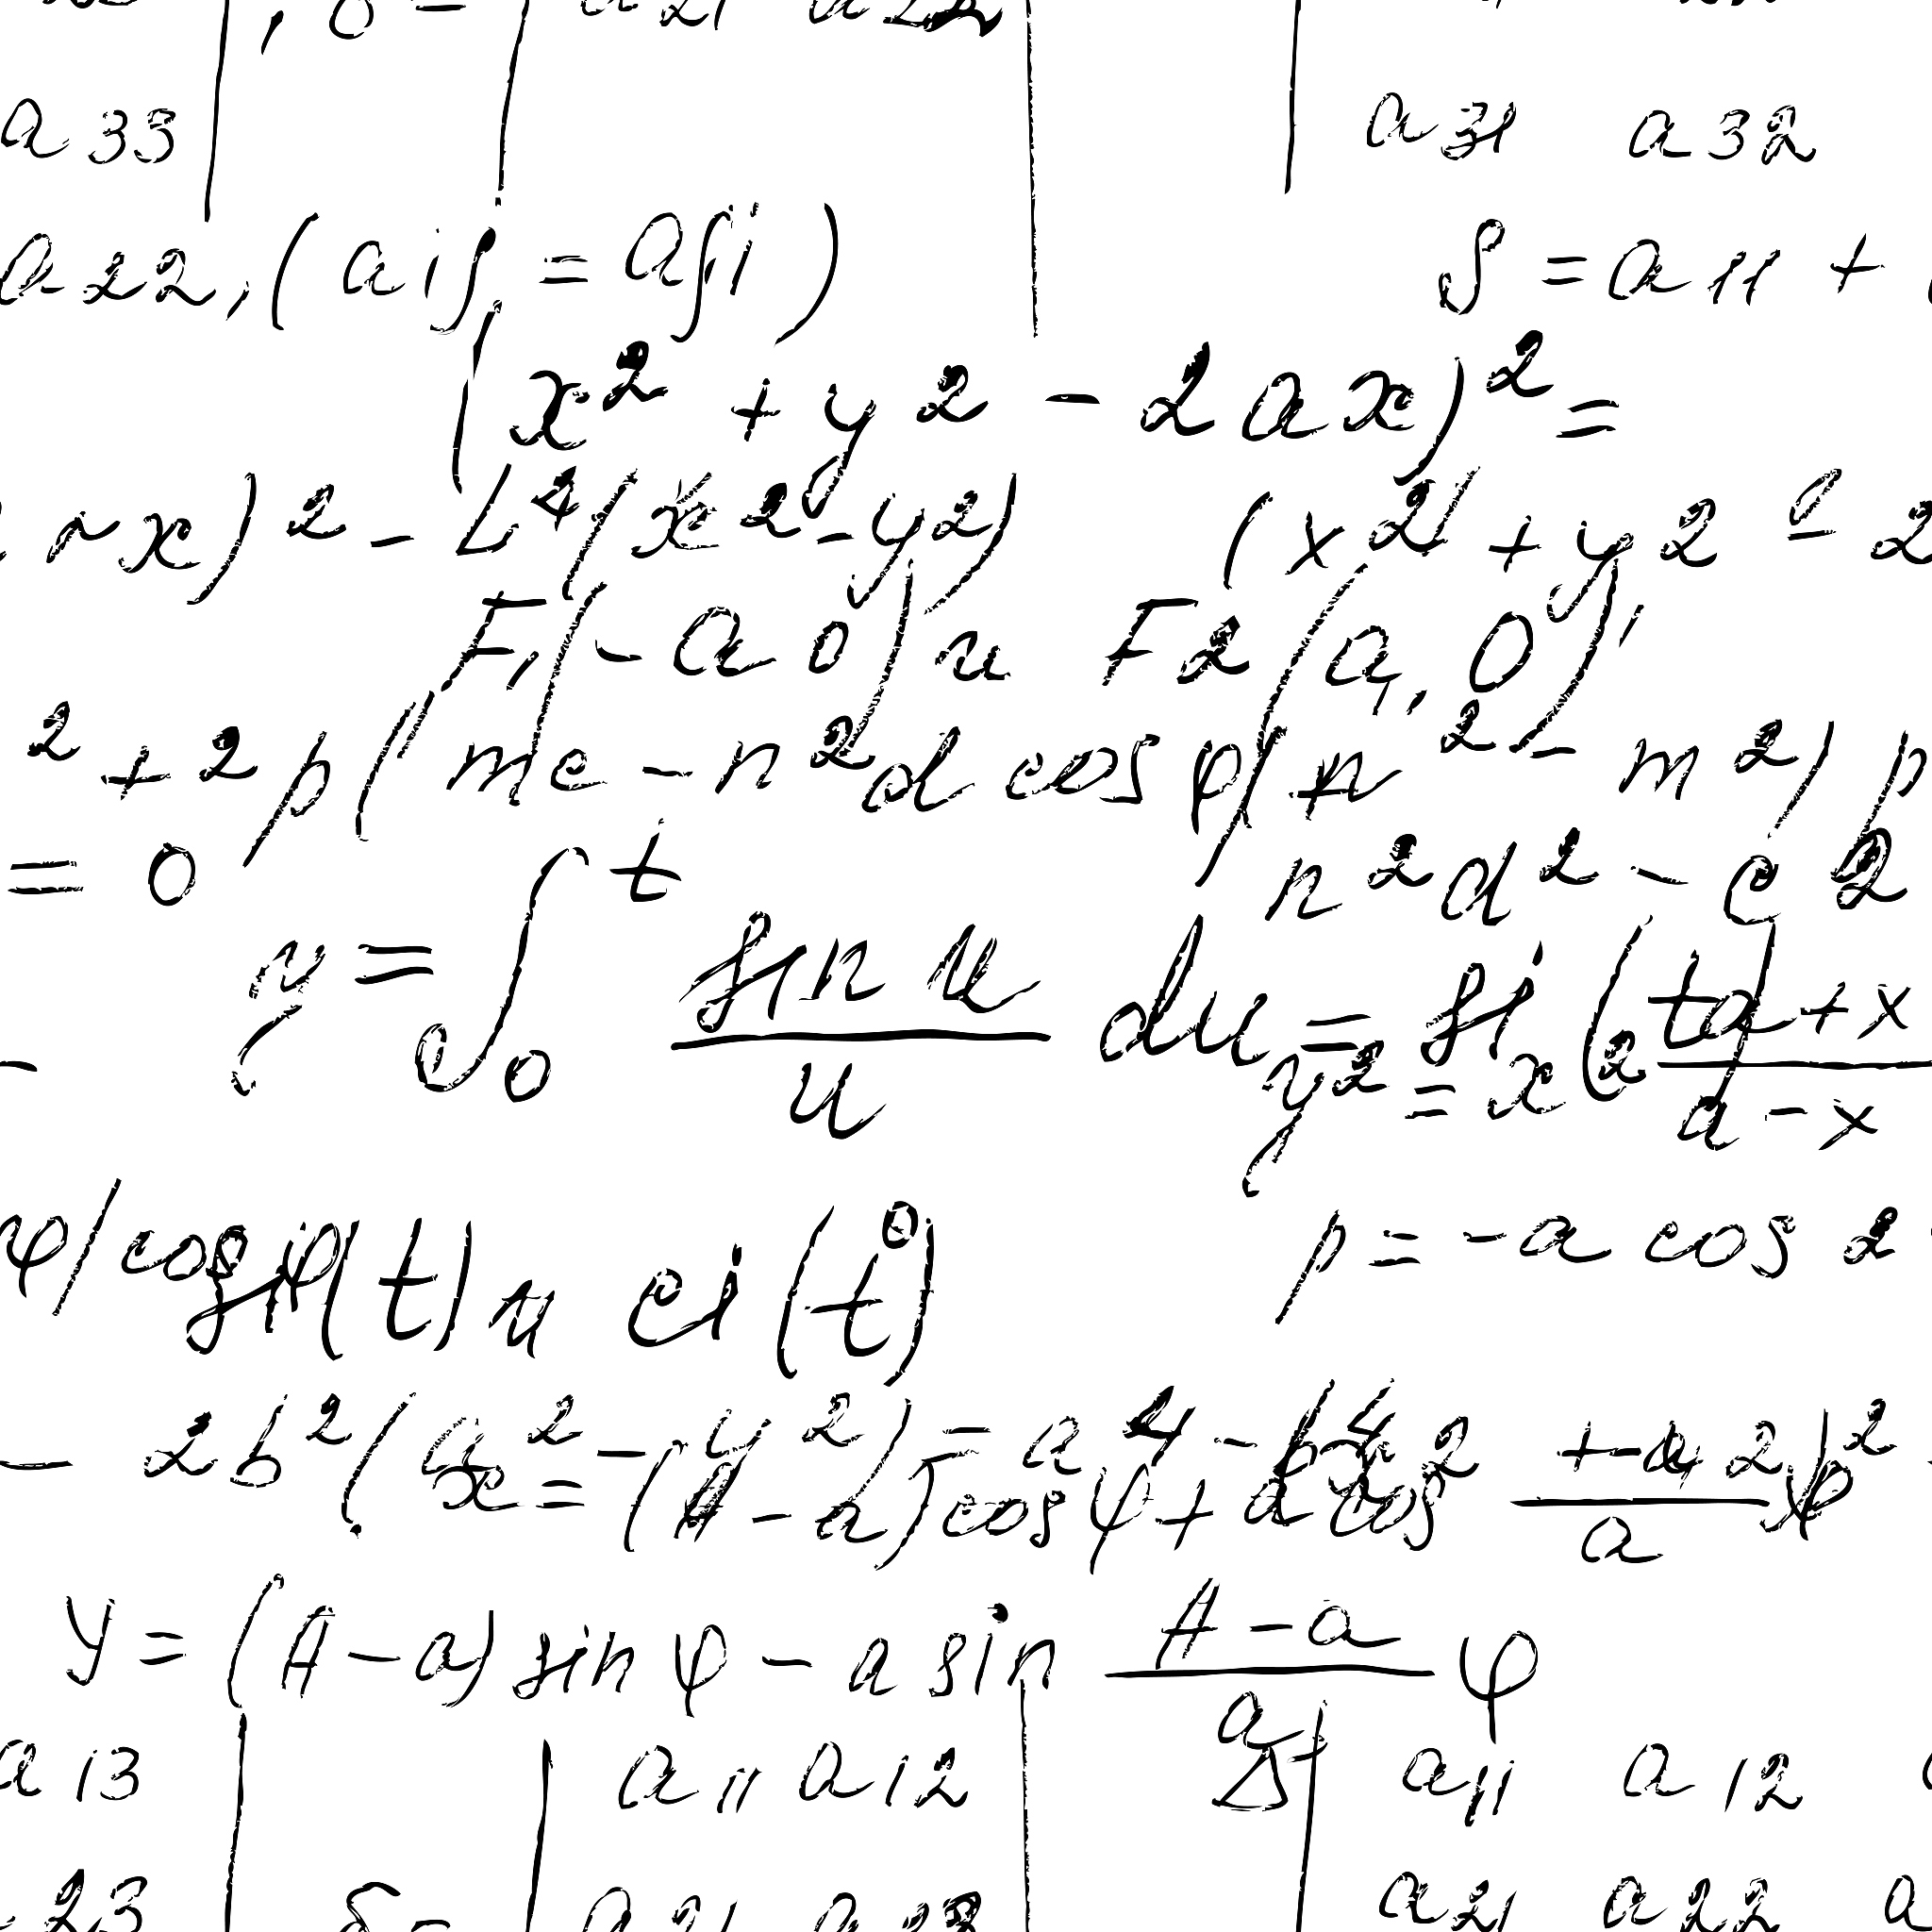 , δ = a21 a22
a33 a31 a32
a22, (aij = aji) S = a11 +
(x² + y² - 2ax)² =
ax)² - L⁴(x² - y²) (x² + y² - 2
F1(-a 0) и F2(a, 0),
² + 2p(mc - n²d cos φ) n² - m²) p
= 0 n²d² - c²
y = ∫₀ᵗ sin u / u du = si (t)
y² = x² a + x / a - x
φ) cos φ ρ = -a cos 2
si (t) и ci (t)
- 2b²(x² - y²) = a⁴ - b⁴
x = (A - a) cos φ + a cos A - a / a φ
y = (A - a) sin φ - a sin A - a / a φ
a13 a11 a12 Δ a11 a12
23 δ = a21 a22 a21 a22 a